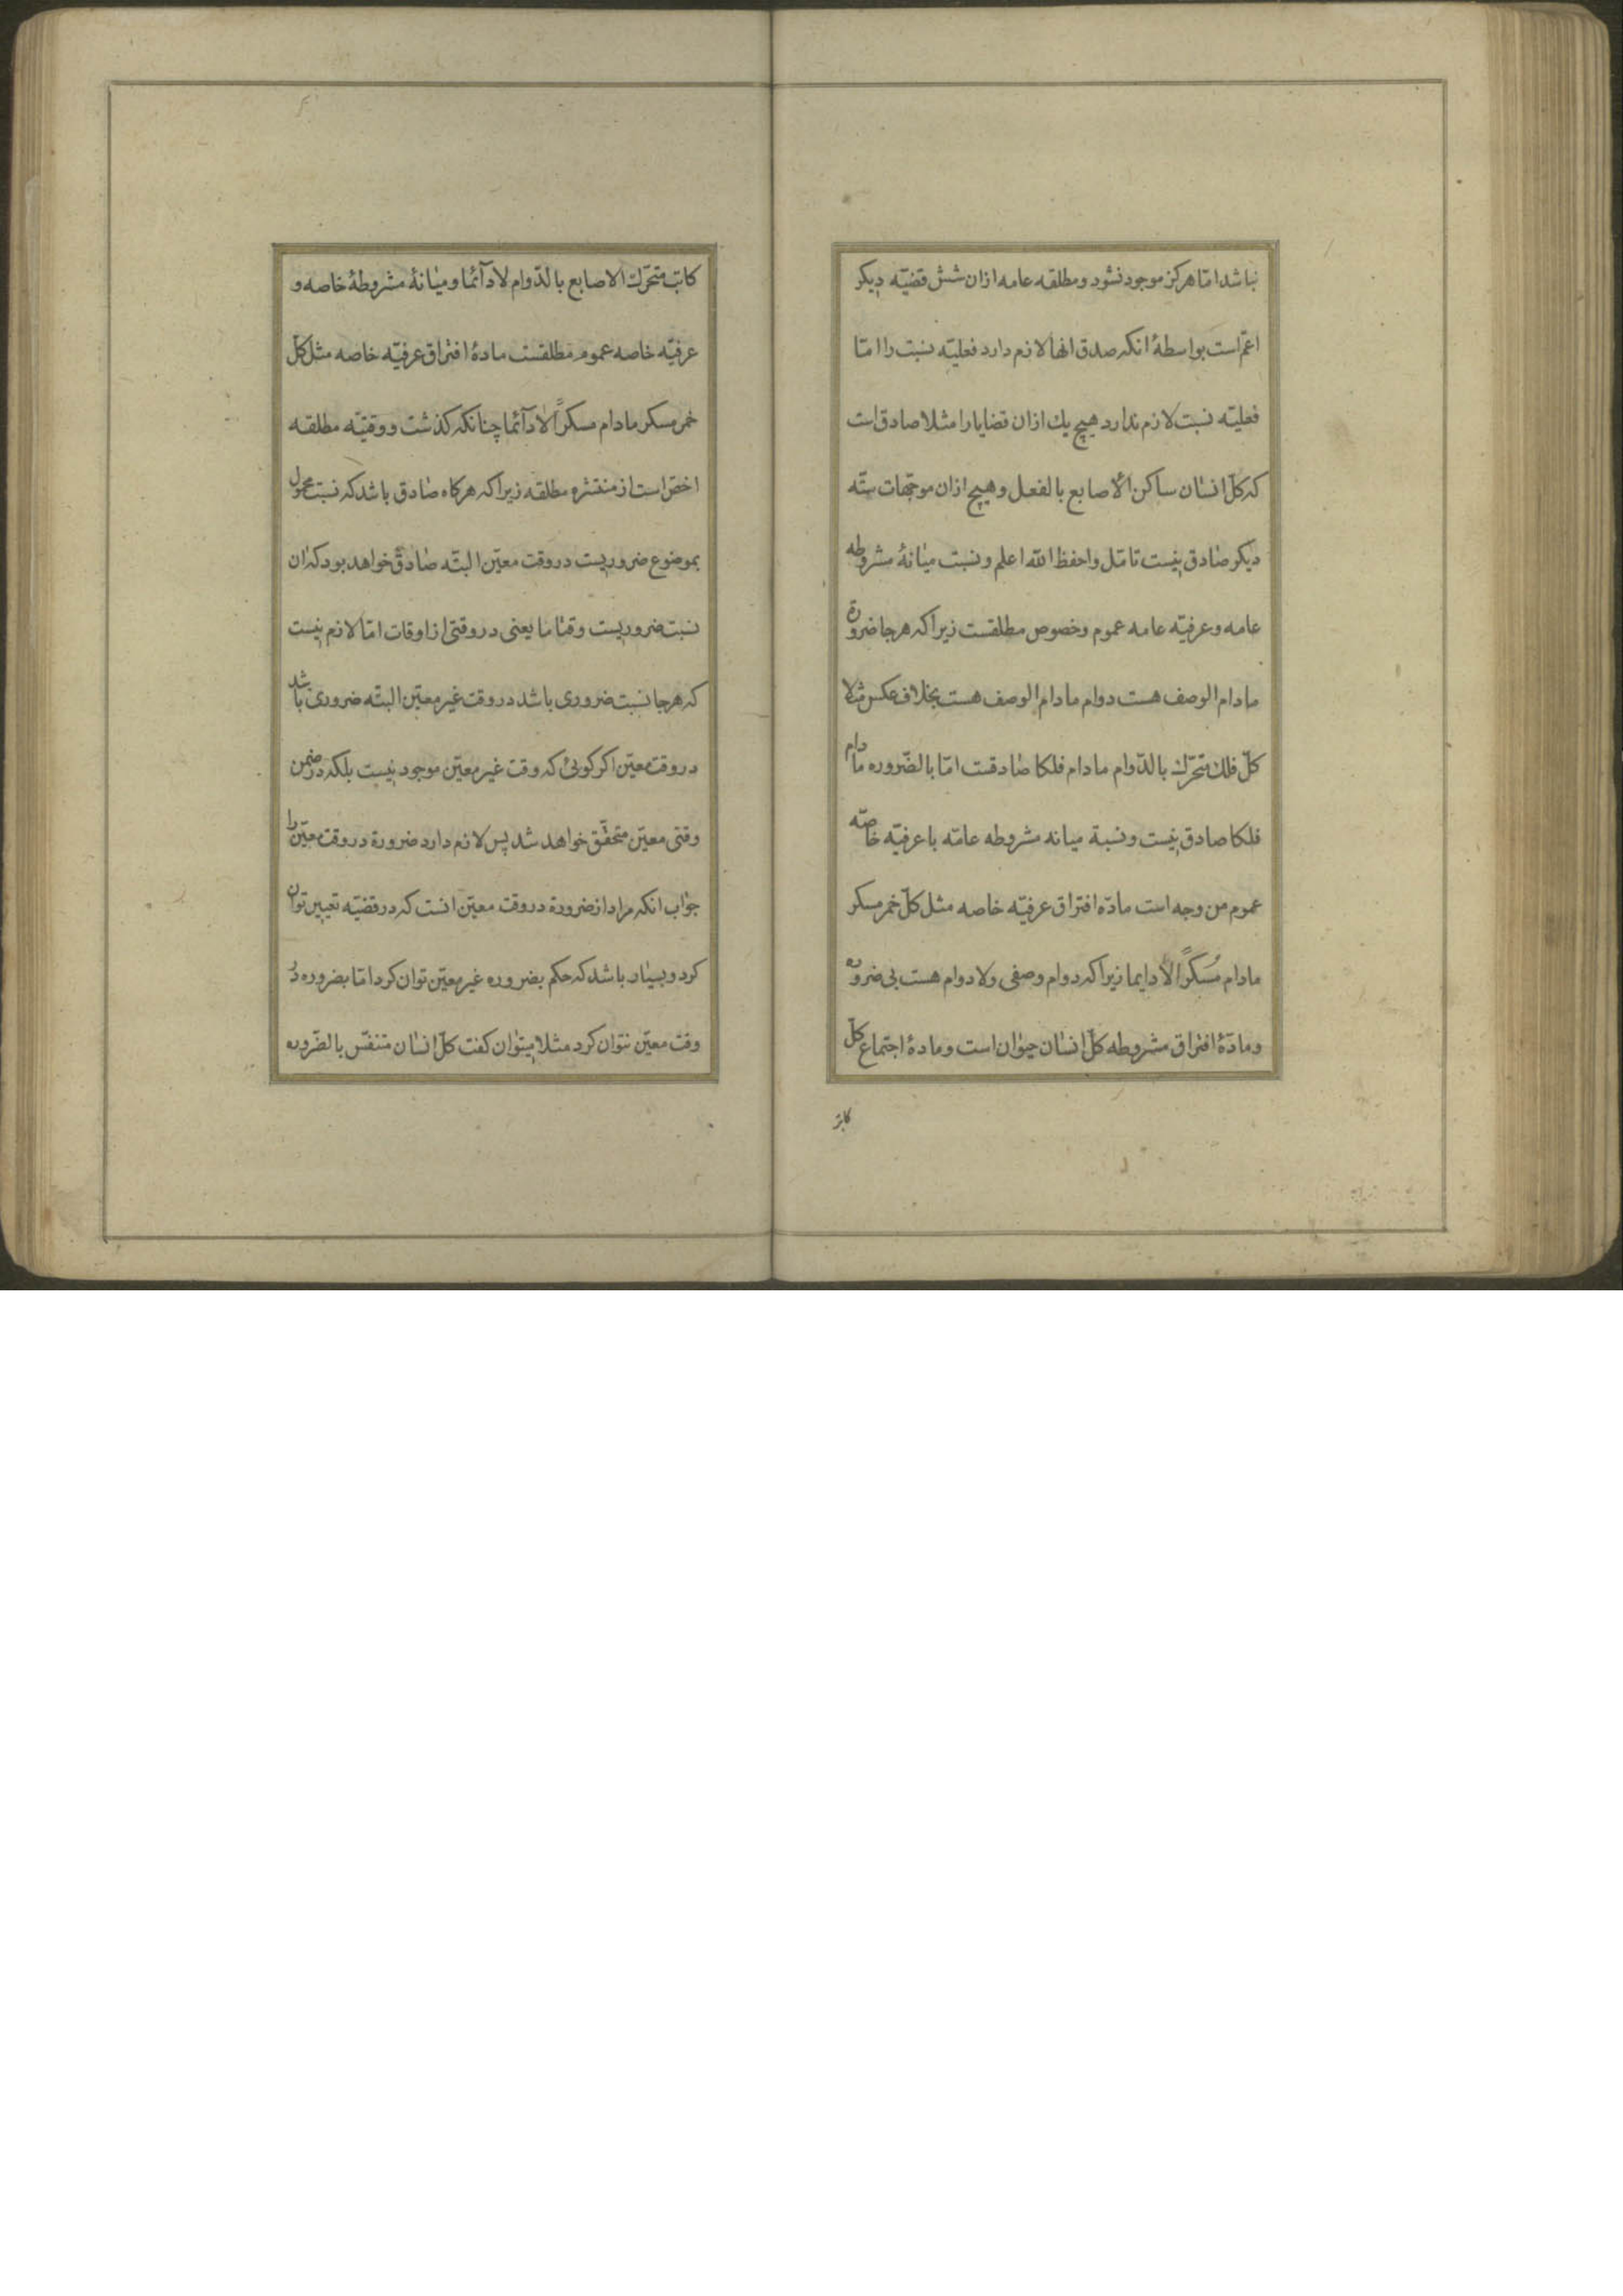 نباشد امّا هرکز موجود نشود و مطلقه عامه ازان شش قضیّه دیکر
اعمّ است بواسطهٔ انکه صدق انها لازم دارد فعلیّه نسبت را امّا
فعلیّه نسبت لازم ندارد هیچ یك ازان قضایا را مثلا صادق است
که کلّ انسان ساکن الأصابع بالفعل و هیچ ازان موجّهات ستّه
دیکر صادق نیست تامّل واحفظ الله اعلم و نسبت میانهٔ مشروطه
عامه و عرفیّه عامه عموم و خصوص مطلقست زیرا که هرجا ضرورة
مادام الوصف هست دوام مادام الوصف هست بخلاف عکس مثلا
کلّ فلك متحرّك بالدّوام مادام فلکا صادقست امّا بالضّروره مادام
فلکا صادق نیست و نسبة میانه مشروطه عامّه با عرفیّه خاصّه
عموم من وجه است مادّه افتراق عرفیّه خاصه مثل کلّ خمر مسکر
مادام مُسکرًا لادایما زیرا که دوام وصفی ولادوام هست بی ضروره
و مادّهٔ افتراق مشروطه کلّ انسان حیوان است و مادهٔ اجتماع کلّ
کاتب
کاتب متحرّك الاصابع بالدّوام لادآئما و میانهٔ مشروطهٔ خاصه و
عرفیّه خاصه عموم مطلقست مادهٔ افتراق عرفیّه خاصه مثل کلّ
خمر مسکر مادام مسکرًا لادآئما چنانکه کذشت و وقتیّه مطلقه
اخصّ است از منتشره مطلقه زیرا که هرکاه صادق باشد که نسبت محمول
بموضوع ضروریست در وقت معیّن البتّه صادق خواهد بود که ان
نسبت ضروریست وقتا ما یعنی در وقتی از اوقات امّا لازم نیست
که هرجا نسبت ضروری باشد در وقت غیر معیّن البتّه ضروری باشد
در وقت معیّن اکر کویئ که وقت غیر معیّن موجود نیست بلکه در ضمن
وقتی معیّن متحقّق خواهد شد پس لازم دارد ضرورة در وقت معیّن را
جواب انکه مراد از ضرورة در وقت معیّن انست که در قضیّه تعیین توان
کرد و بسیار باشد که حکم بضروره غیر معیّن توان کرد امّا بضروره در
وقت معیّن نتوان کرد مثلا میتوان کفت کلّ انسان متنفّس بالضّروره